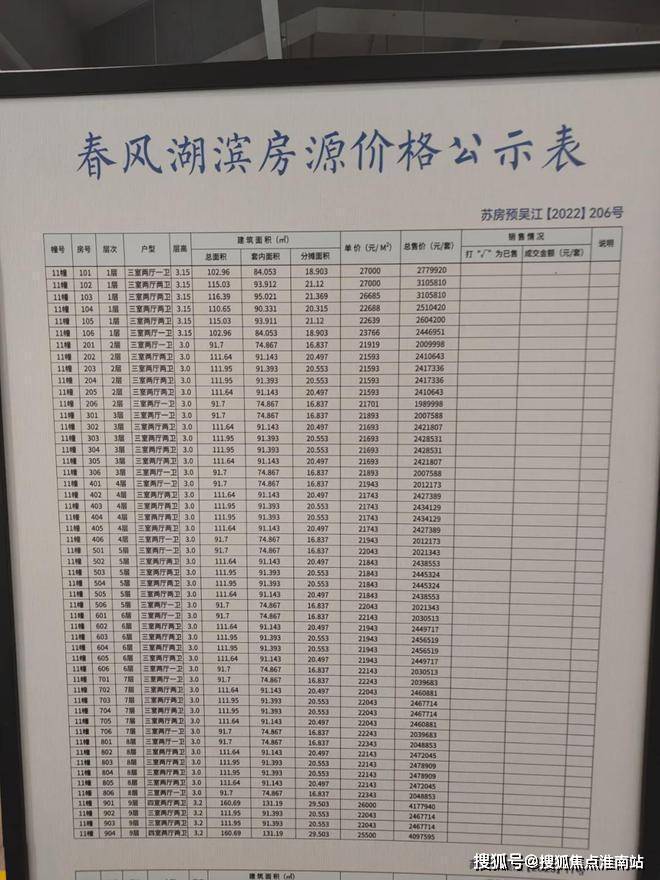 春风湖滨房源价格公示表
苏房预吴江【2022】206号
幢号 房号 层次 户型 层高 建筑面积（㎡） 单价（元/M²） 总售价（元/套） 销售情况 说明
总面积 套内面积 分摊面积 打“√”为已售 成交金额（元/套）
11幢 101 1层 三室两厅一卫 3.15 102.96 84.053 18.903 27000 2779920
11幢 102 1层 三室两厅两卫 3.15 115.03 93.912 21.12 27000 3105810
11幢 103 1层 三室两厅两卫 3.15 116.39 95.021 21.369 26685 3105810
11幢 104 1层 三室两厅两卫 3.15 110.65 90.331 20.315 22688 2510420
11幢 105 1层 三室两厅两卫 3.15 115.03 93.911 21.12 22639 2604200
11幢 106 1层 三室两厅一卫 3.15 102.96 84.053 18.903 23766 2446951
11幢 201 2层 三室两厅一卫 3.0 91.7 74.867 16.837 21919 2009998
11幢 202 2层 三室两厅两卫 3.0 111.64 91.143 20.497 21593 2410643
11幢 203 2层 三室两厅两卫 3.0 111.95 91.393 20.553 21593 2417336
11幢 204 2层 三室两厅两卫 3.0 111.95 91.393 20.553 21593 2417336
11幢 205 2层 三室两厅两卫 3.0 111.64 91.143 20.497 21593 2410643
11幢 206 2层 三室两厅一卫 3.0 91.7 74.867 16.837 21701 1989998
11幢 301 3层 三室两厅一卫 3.0 91.7 74.867 16.837 21893 2007588
11幢 302 3层 三室两厅两卫 3.0 111.64 91.143 20.497 21693 2421807
11幢 303 3层 三室两厅两卫 3.0 111.95 91.393 20.553 21693 2428531
11幢 304 3层 三室两厅两卫 3.0 111.95 91.393 20.553 21693 2428531
11幢 305 3层 三室两厅两卫 3.0 111.64 91.143 20.497 21693 2421807
11幢 306 3层 三室两厅一卫 3.0 91.7 74.867 16.837 21893 2007588
11幢 401 4层 三室两厅一卫 3.0 91.7 74.867 16.837 21943 2012173
11幢 402 4层 三室两厅两卫 3.0 111.64 91.143 20.497 21743 2427389
11幢 403 4层 三室两厅两卫 3.0 111.95 91.393 20.553 21743 2434129
11幢 404 4层 三室两厅两卫 3.0 111.95 91.393 20.553 21743 2434129
11幢 405 4层 三室两厅两卫 3.0 111.64 91.143 20.497 21743 2427389
11幢 406 4层 三室两厅一卫 3.0 91.7 74.867 16.837 21943 2012173
11幢 501 5层 三室两厅一卫 3.0 91.7 74.867 16.837 22043 2021343
11幢 502 5层 三室两厅两卫 3.0 111.64 91.143 20.497 21843 2438553
11幢 503 5层 三室两厅两卫 3.0 111.95 91.393 20.553 21843 2445324
11幢 504 5层 三室两厅两卫 3.0 111.95 91.393 20.553 21843 2445324
11幢 505 5层 三室两厅两卫 3.0 111.64 91.143 20.497 21843 2438553
11幢 506 5层 三室两厅一卫 3.0 91.7 74.867 16.837 22043 2021343
11幢 601 6层 三室两厅一卫 3.0 91.7 74.867 16.837 22143 2030513
11幢 602 6层 三室两厅两卫 3.0 111.64 91.143 20.497 21943 2449717
11幢 603 6层 三室两厅两卫 3.0 111.95 91.393 20.553 21943 2456519
11幢 604 6层 三室两厅两卫 3.0 111.95 91.393 20.553 21943 2456519
11幢 605 6层 三室两厅两卫 3.0 111.64 91.143 20.497 21943 2449717
11幢 606 6层 三室两厅一卫 3.0 91.7 74.867 16.837 22143 2030513
11幢 701 7层 三室两厅一卫 3.0 91.7 74.867 16.837 22243 2039683
11幢 702 7层 三室两厅两卫 3.0 111.64 91.143 20.497 22043 2460881
11幢 703 7层 三室两厅两卫 3.0 111.95 91.393 20.553 22043 2467714
11幢 704 7层 三室两厅两卫 3.0 111.95 91.393 20.553 22043 2467714
11幢 705 7层 三室两厅两卫 3.0 111.64 91.143 20.497 22043 2460881
11幢 706 7层 三室两厅一卫 3.0 91.7 74.867 16.837 22243 2039683
11幢 801 8层 三室两厅一卫 3.0 91.7 74.867 16.837 22343 2048853
11幢 802 8层 三室两厅两卫 3.0 111.64 91.143 20.497 22143 2472045
11幢 803 8层 三室两厅两卫 3.0 111.95 91.393 20.553 22143 2478909
11幢 804 8层 三室两厅两卫 3.0 111.95 91.393 20.553 22143 2478909
11幢 805 8层 三室两厅两卫 3.0 111.64 91.143 20.497 22143 2472045
11幢 806 8层 三室两厅一卫 3.0 91.7 74.867 16.837 22343 2048853
11幢 901 9层 四室两厅两卫 3.2 160.69 131.19 29.503 26000 4177940
11幢 902 9层 三室两厅两卫 3.0 111.95 91.393 20.553 22043 2467714
11幢 903 9层 三室两厅两卫 3.0 111.95 91.393 20.553 22043 2467714
11幢 904 9层 四室两厅两卫 3.2 160.69 131.19 29.503 25500 4097595
建筑面积（㎡）
搜狐号@搜狐焦点淮南站